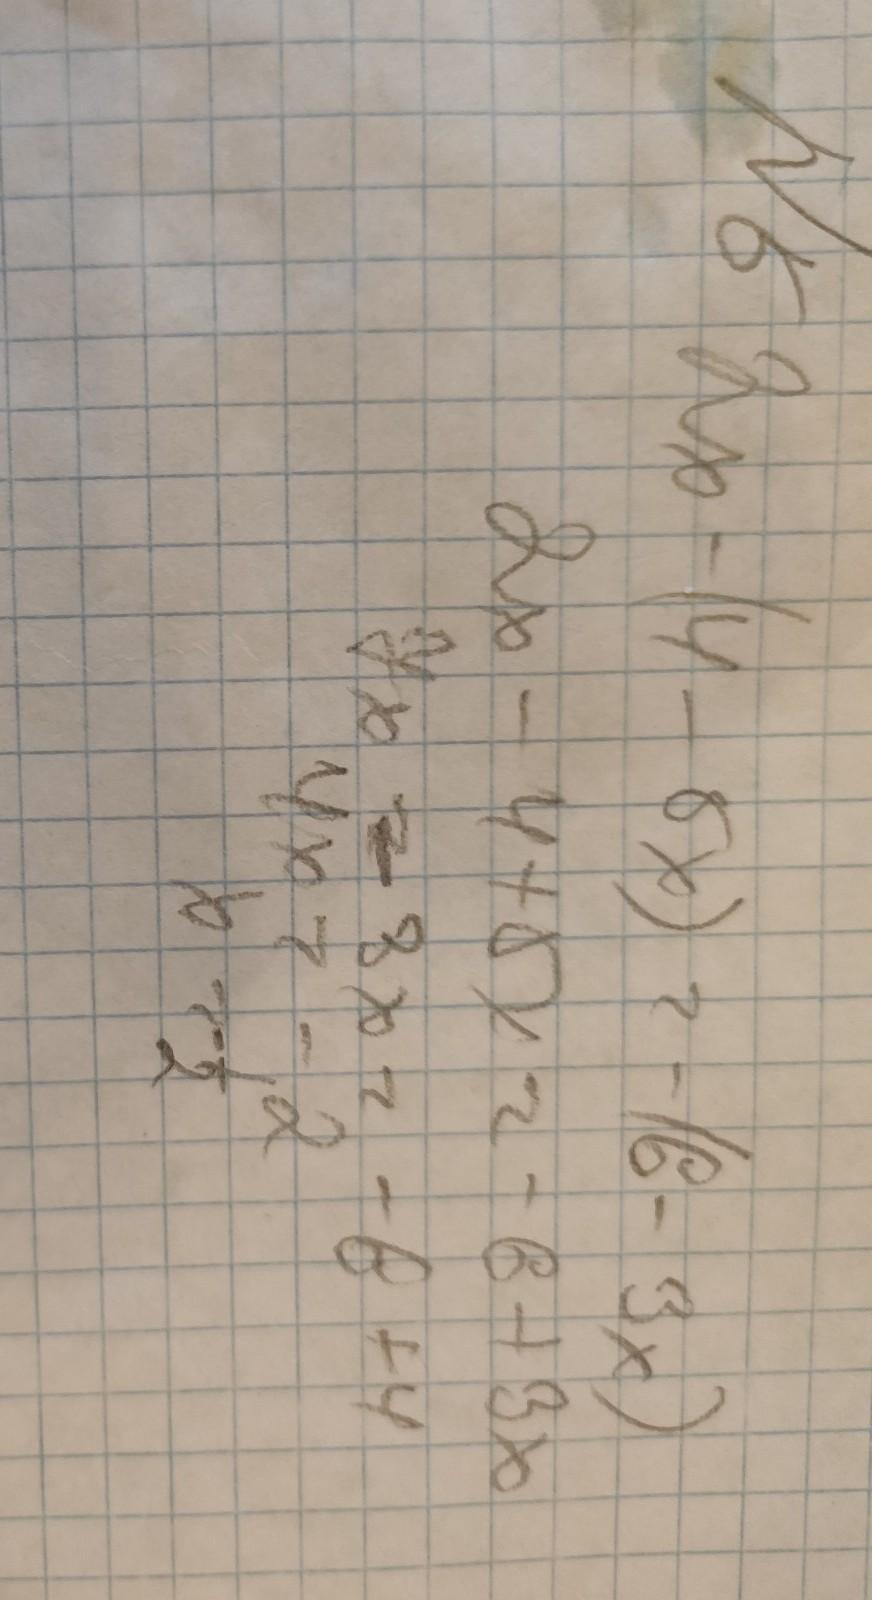 №5
2x - (4 - 5x) = -(6 - 3x)
2x - 4 + 5x = -6 + 3x
7x - 3x = -6 + 4
4x = -2
x = -1/2